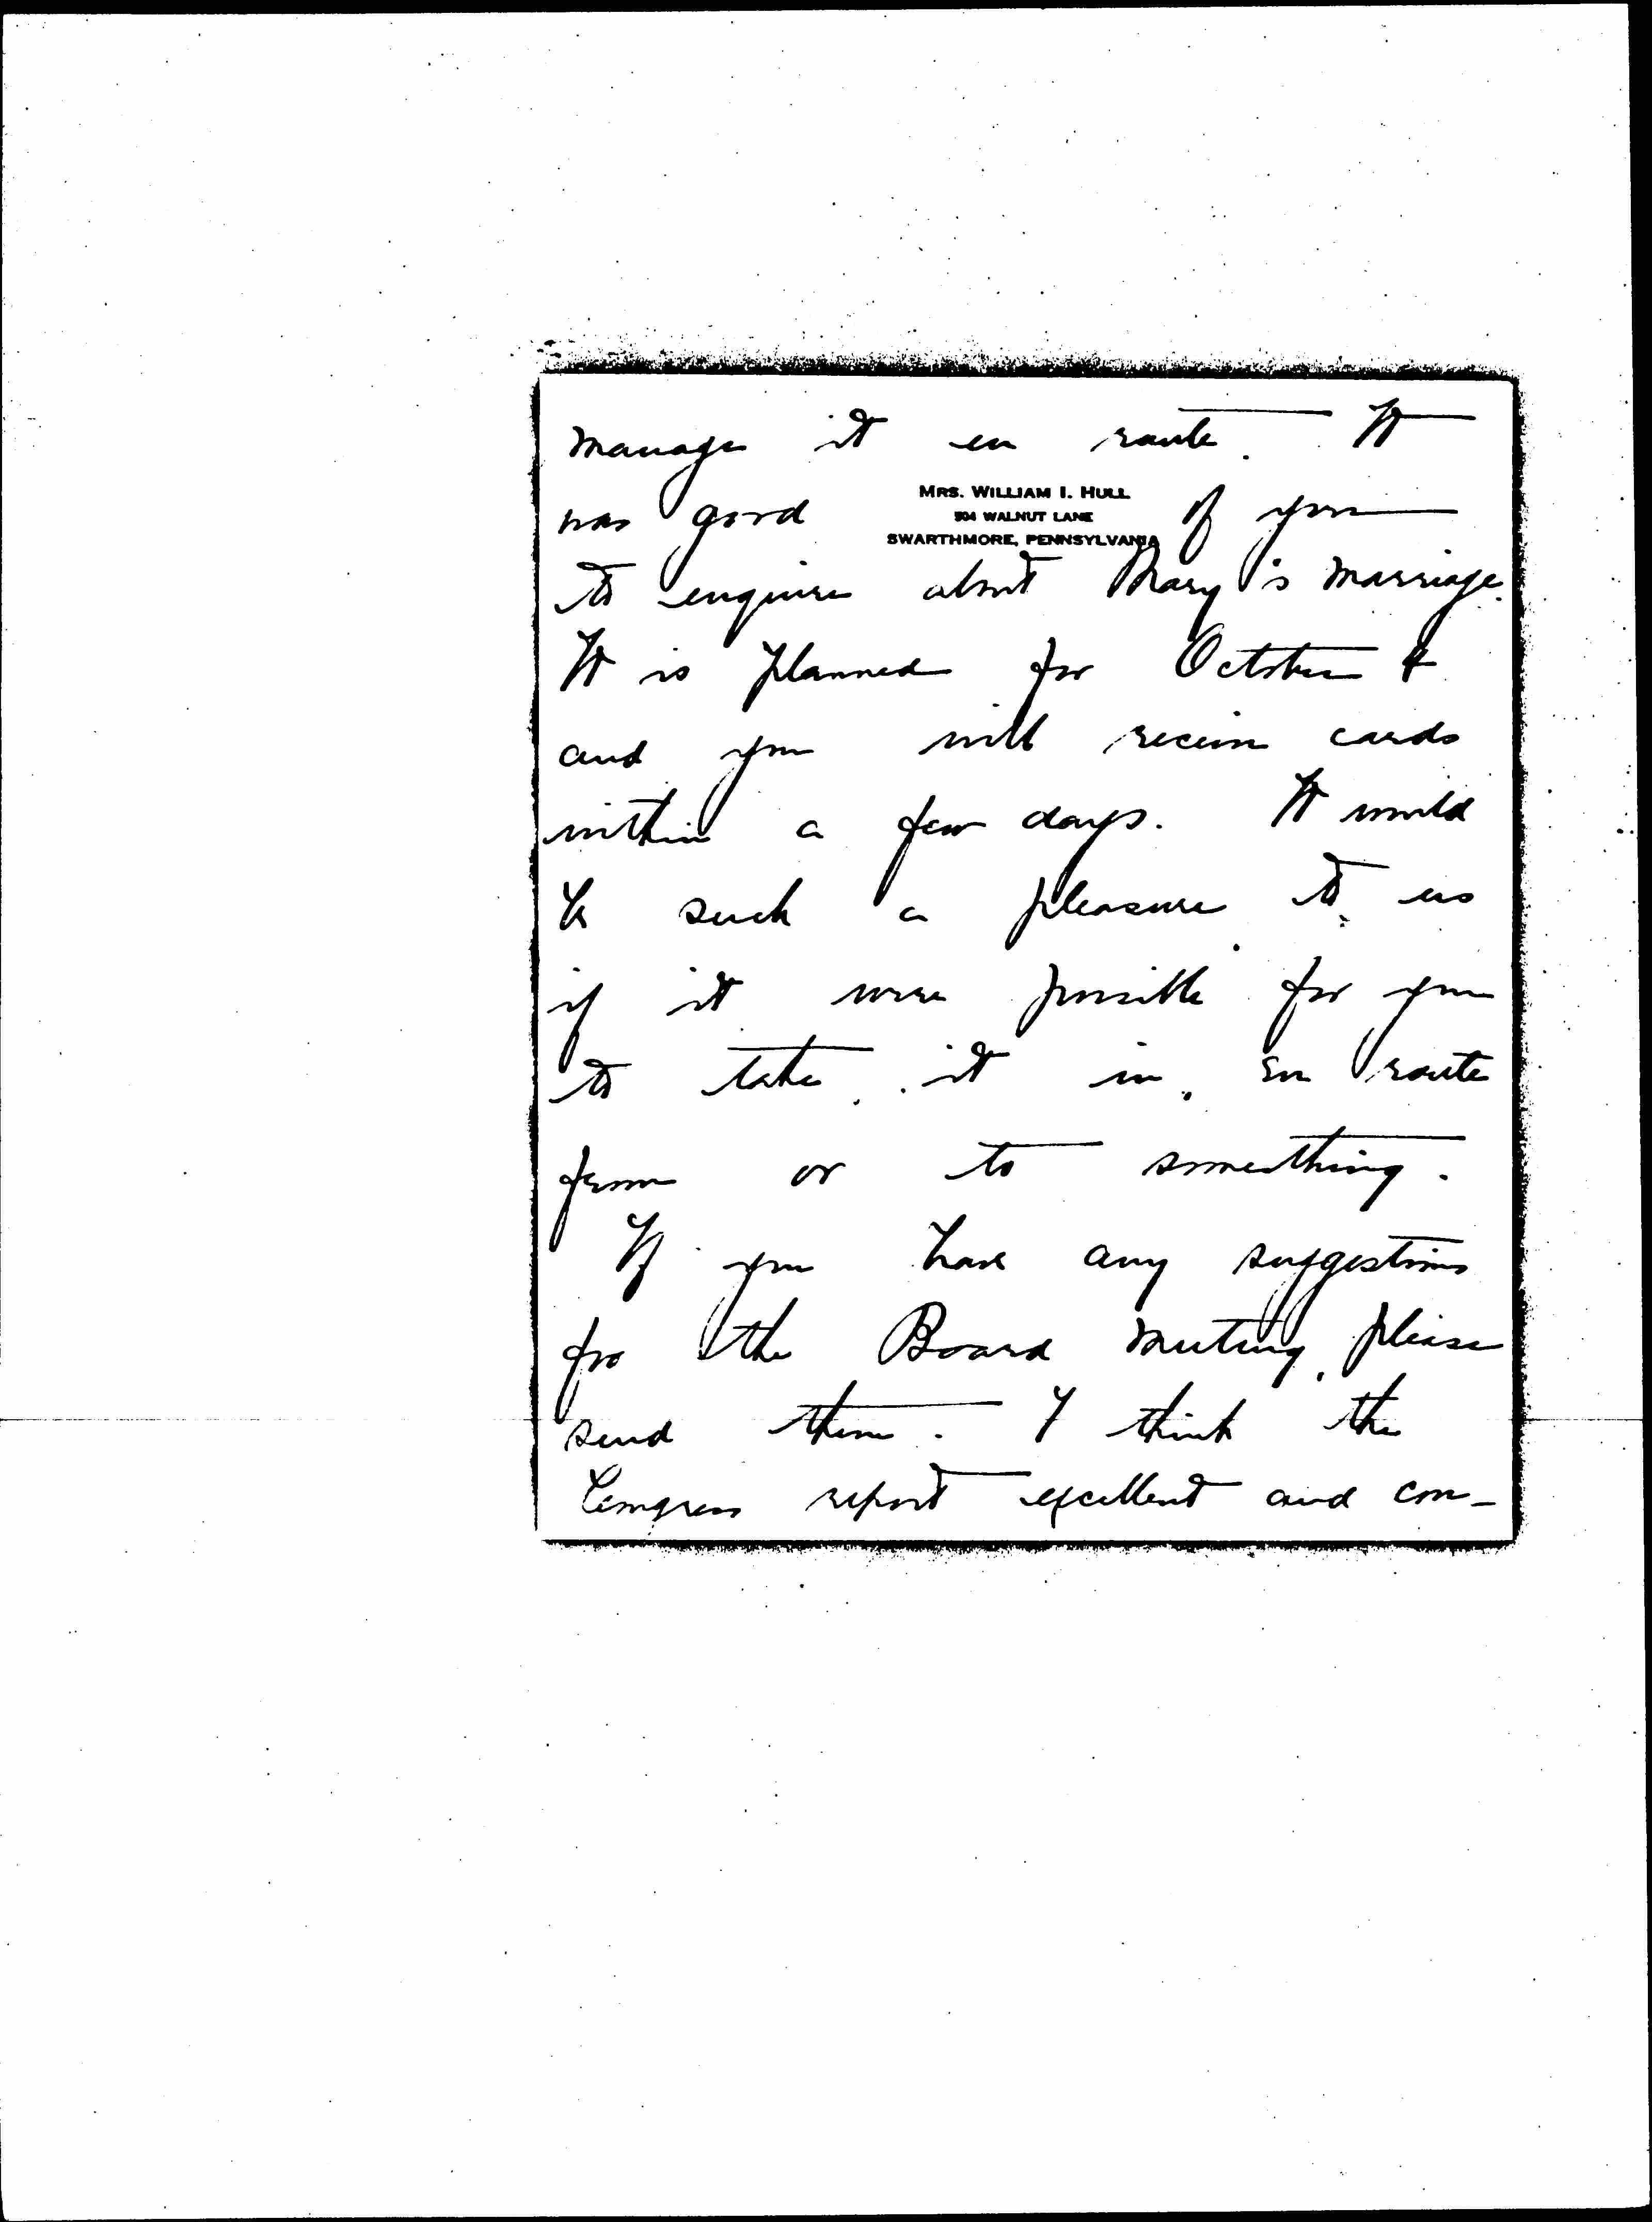 manage it en route. It
MRS. WILLIAM I. HULL
504 WALNUT LANE
SWARTHMORE, PENNSYLVANIA
was good of you
to enquire about Mary's marriage.
It is planned for October 4
and you will receive cards
within a few days. It would
be such a pleasure to us
if it were possible for you
to take it in, en route
from or to something.
If you have any suggestions
for the Board meeting, please
send them. I think the
Congress report excellent and con-